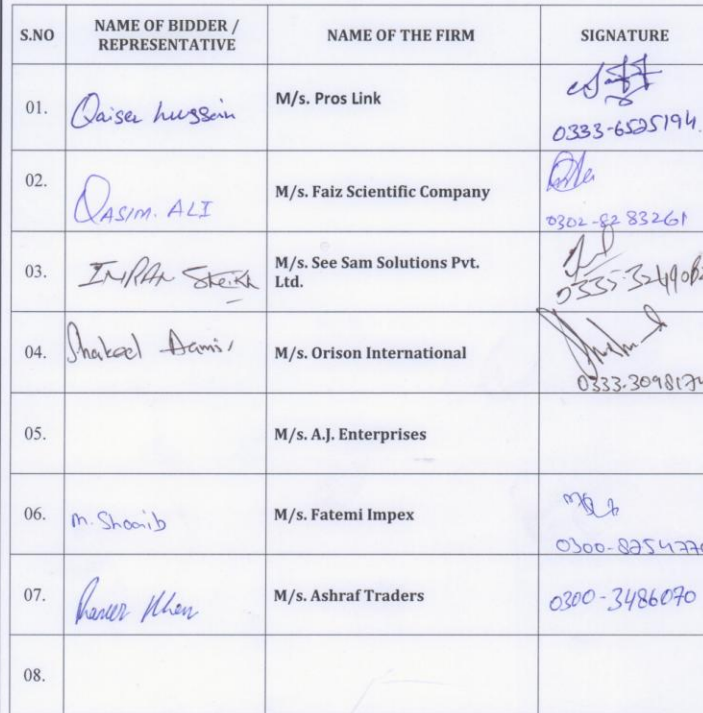 S.NO NAME OF BIDDER / REPRESENTATIVE NAME OF THE FIRM SIGNATURE
01. Qaiser Hussain M/s. Pros Link
0333-6525194
02. QASIM. ALI M/s. Faiz Scientific Company
0302-8283261
03. IMRAN Sheikh M/s. See Sam Solutions Pvt. Ltd.
04. Shakeel Aamir M/s. Orison International
0333-3098174
05. M/s. A.J. Enterprises
06. M. Shoaib M/s. Fatemi Impex
07. Khan M/s. Ashraf Traders
0300-3486070
08.